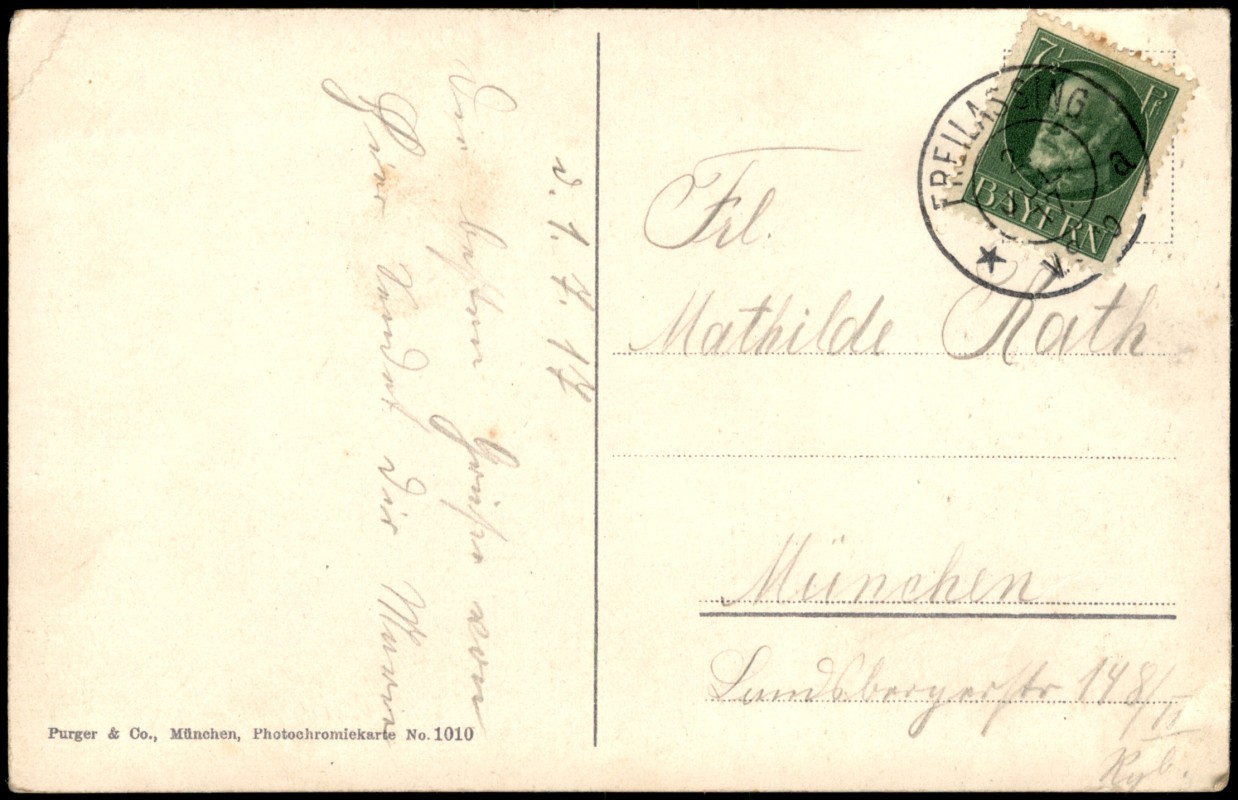 d. 1. 7. 17
Die besten Grüße von
Hier sendet dir Marie
Purger & Co., München, Photochromiekarte No. 1010
BAYERN
FREILASSING
Frl.
Mathilde Rath
München
Landsbergerstr 148/II
Rgb.